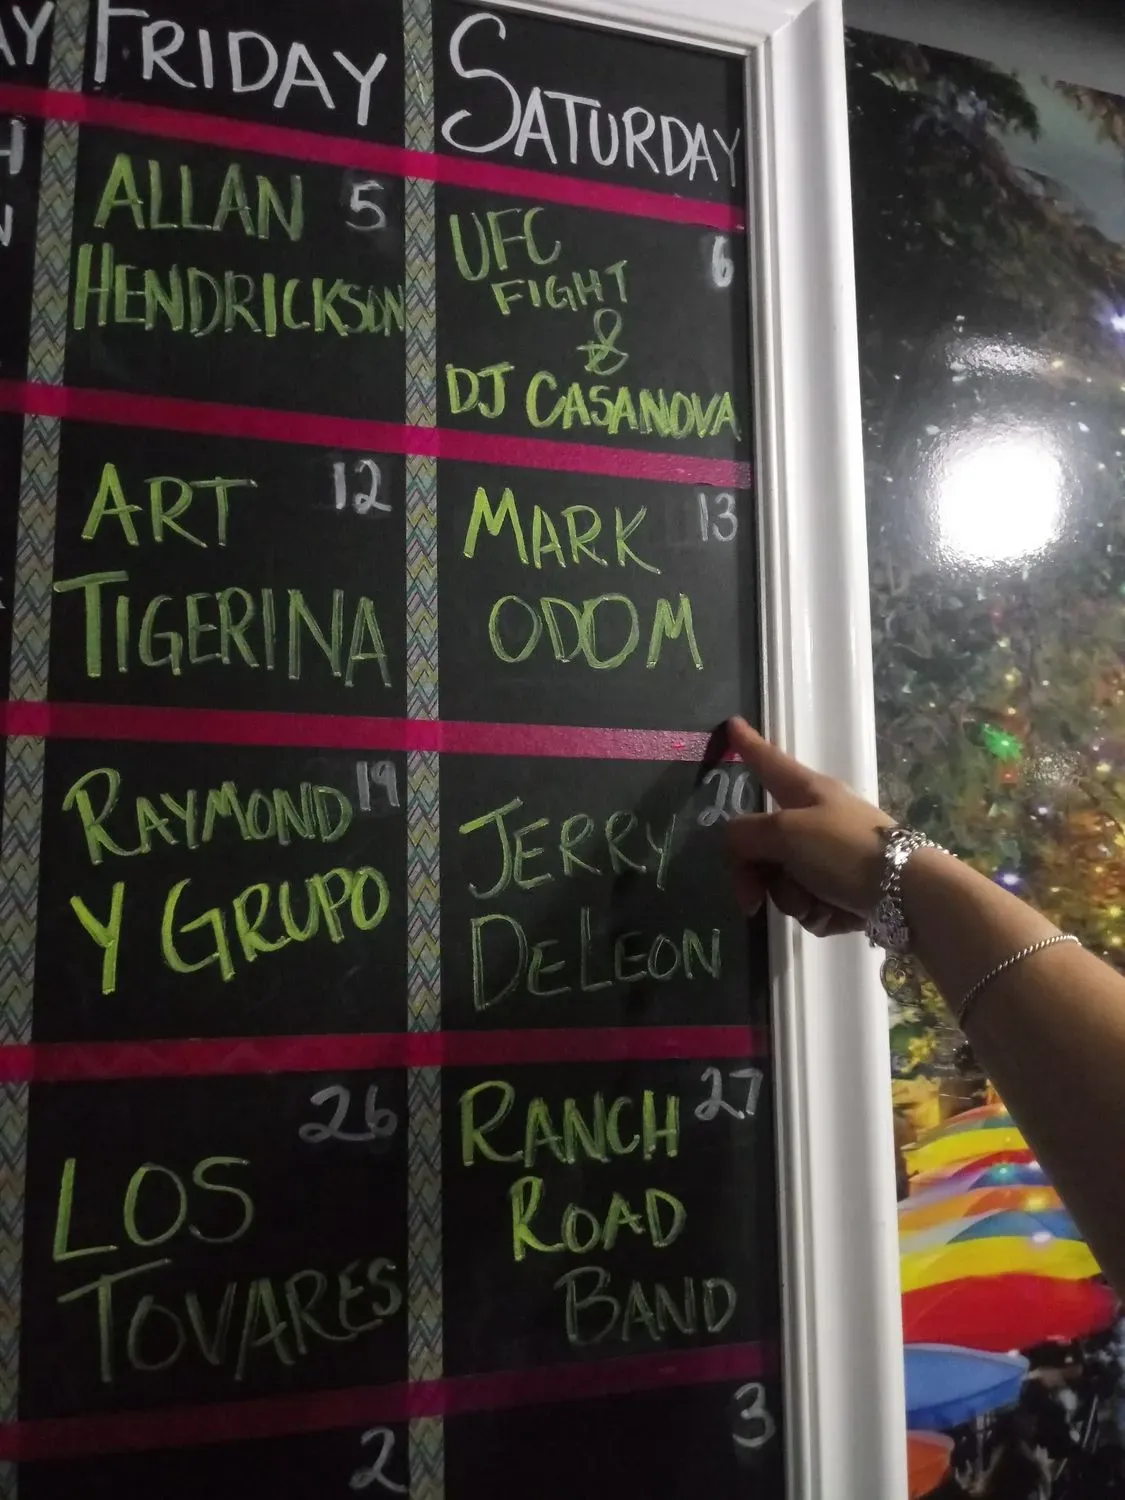 AY
FRIDAY
SATURDAY
H
N
ALLAN
HENDRICKSON
5
UFC
FIGHT
&
DJ CASANOVA
6
ART
TIGERINA
12
MARK
ODOM
13
RAYMOND
Y GRUPO
19
JERRY
DELEON
20
LOS
TOVARES
26
RANCH
ROAD
BAND
27
2
3